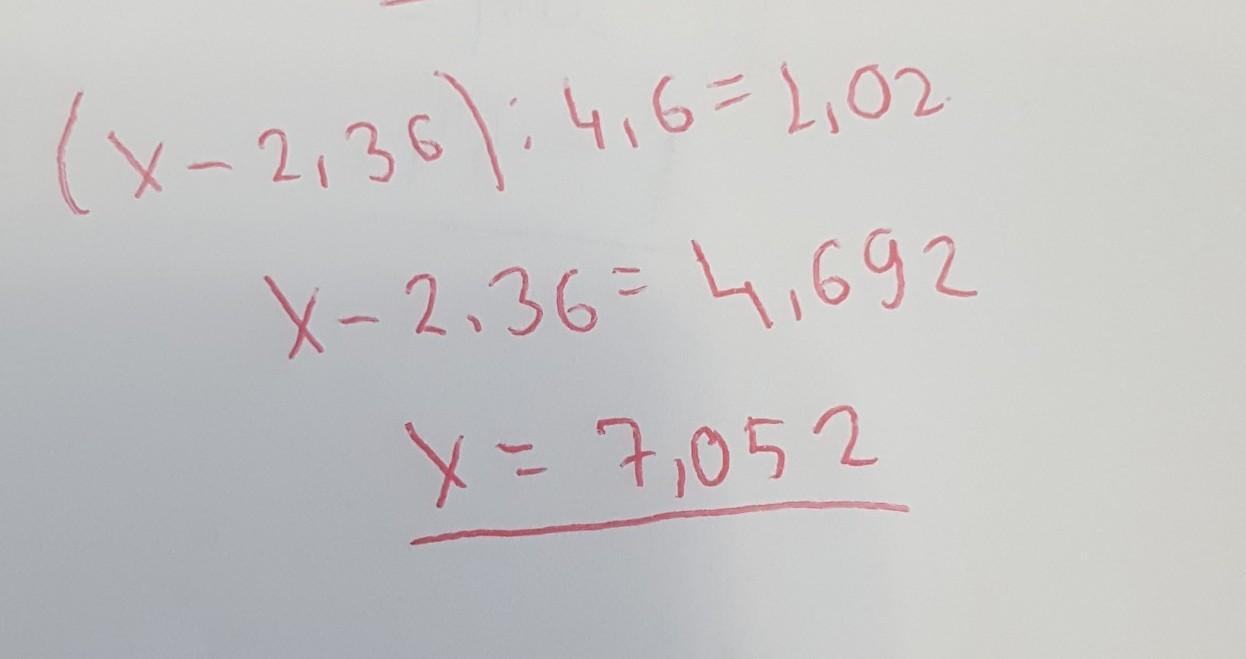 (x - 2,36) : 4,6 = 1,02
x - 2.36 = 4,692
x = 7,052